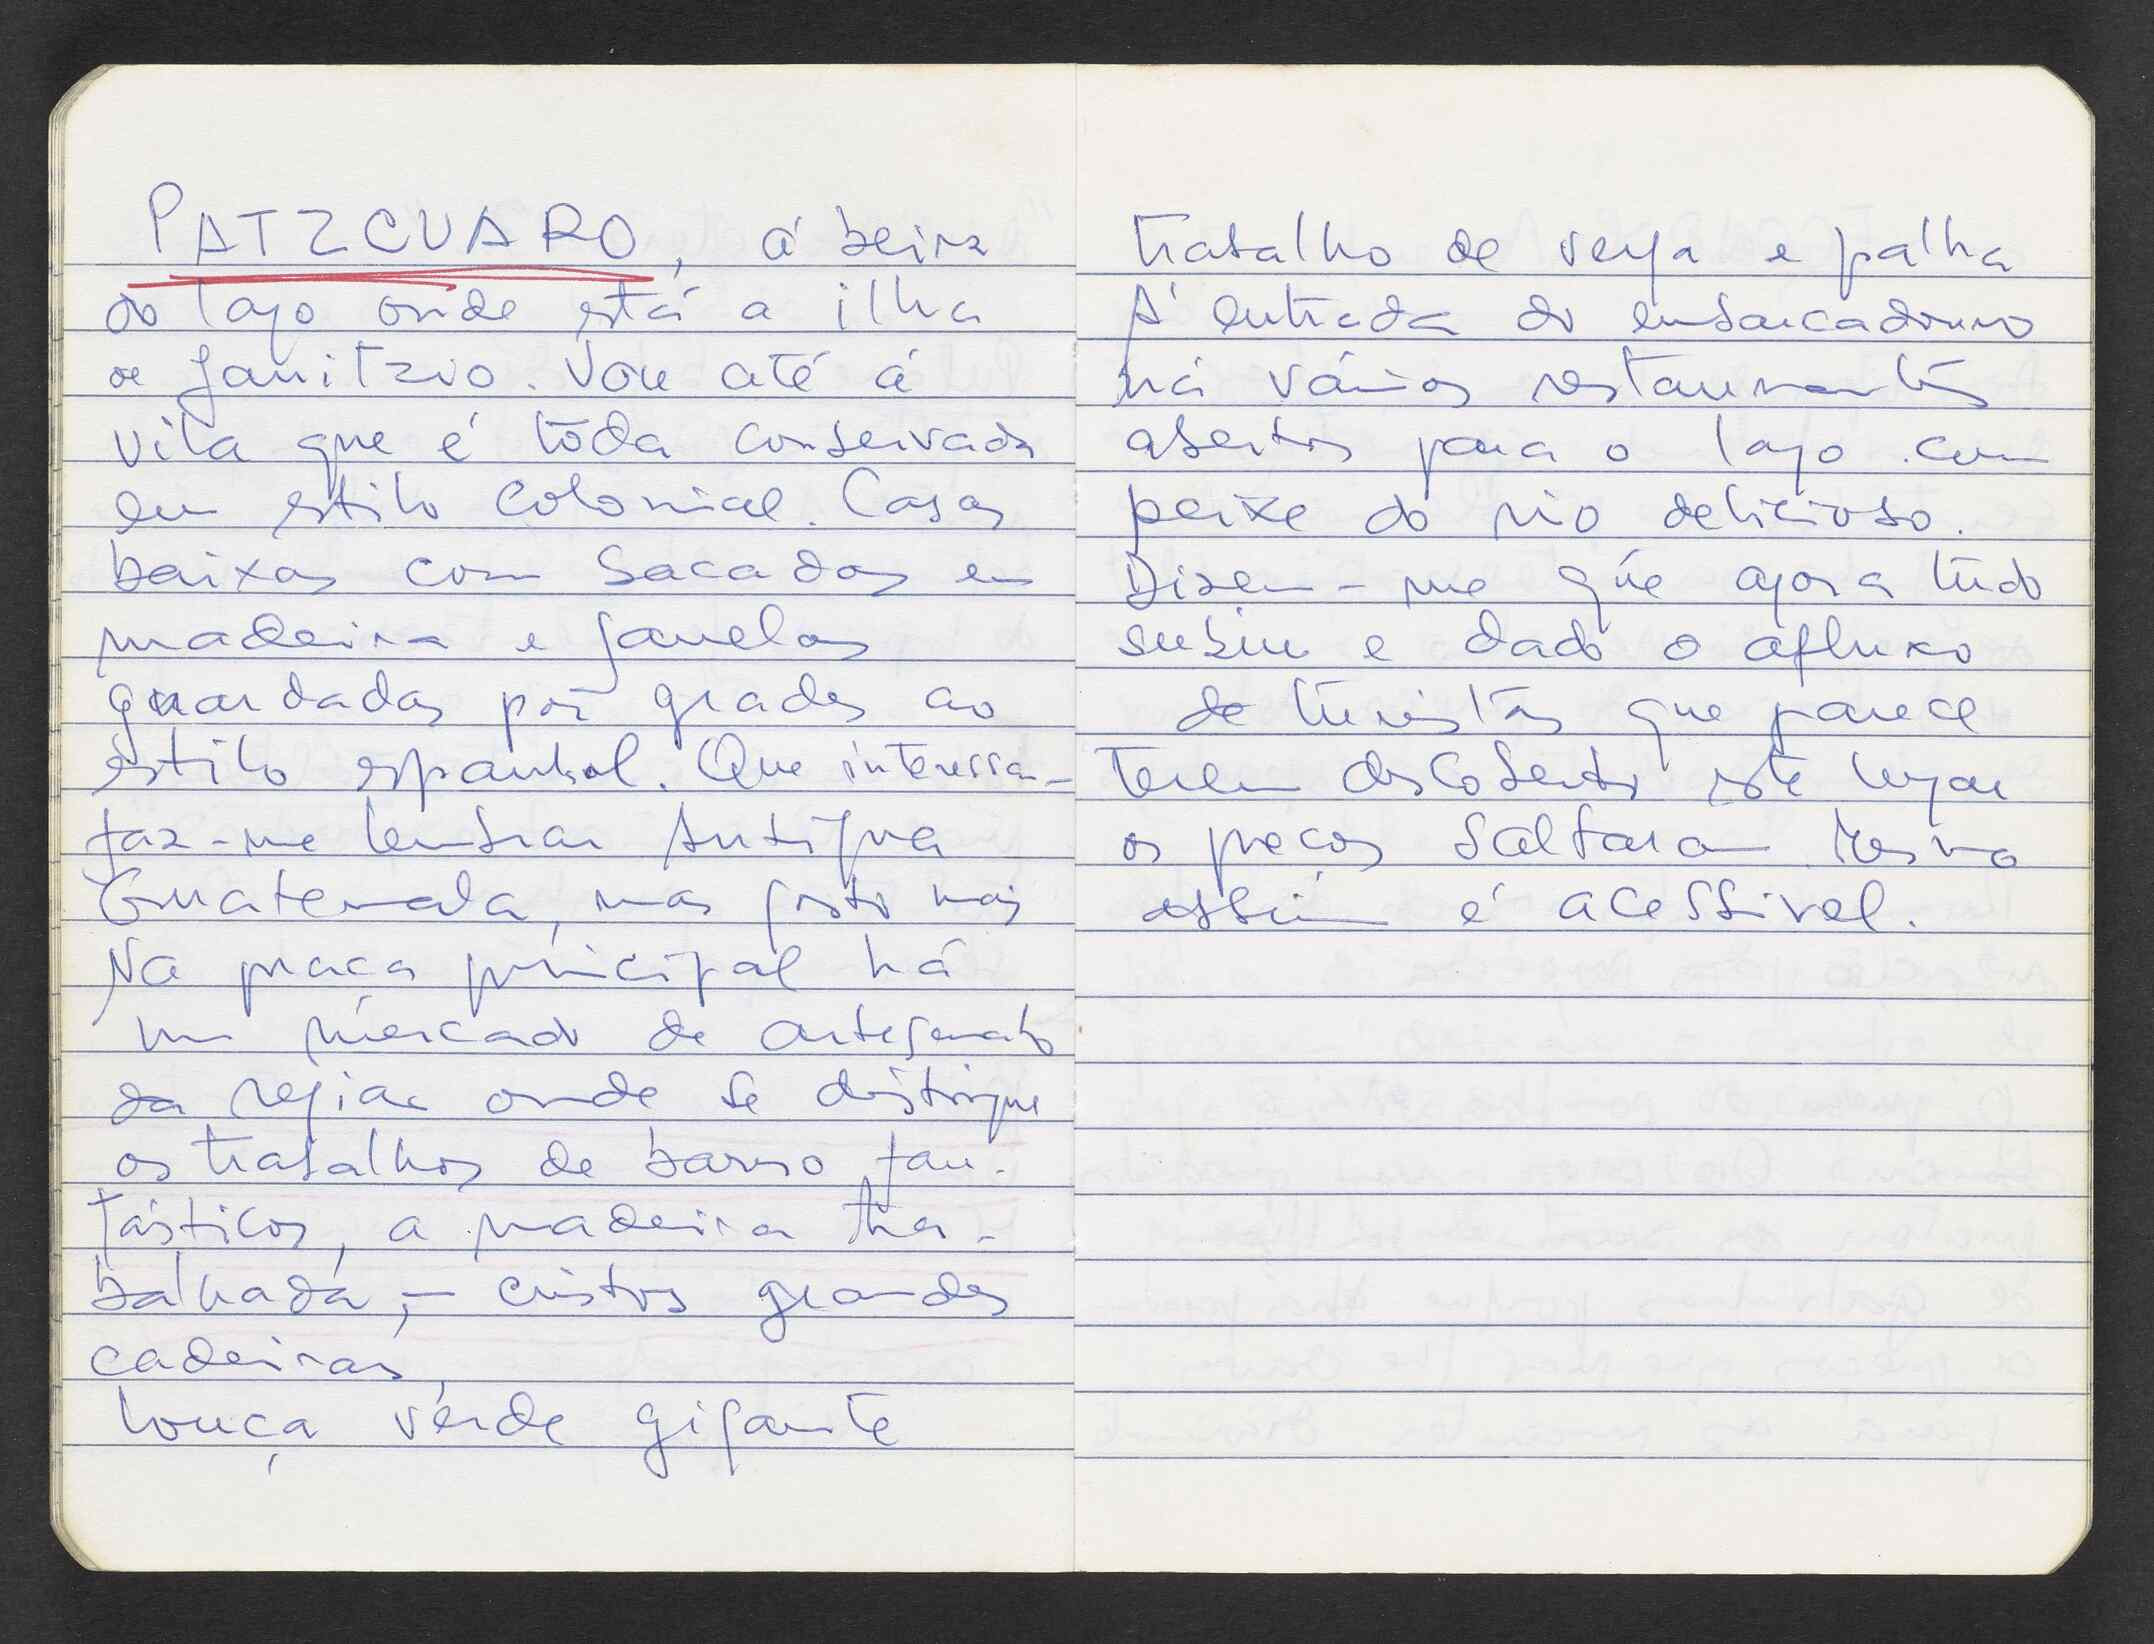 PATZCUARO, á beira
do lago onde está a ilha
de Janitzio. Vou até á
vila que é tôda conservada
em estilo colonial. Casas
baixas com sacadas em
madeira e janelas
guardadas por grades ao
estilo espanhol. Que interessan-
faz-me lembrar Antigua
Guatemala, mas gosto mais
Na praça principal há
um mercado de artesanato
da região onde se distingue
os trabalhos de barro fan-
tásticos, a madeira tra-
balhada, - cristos grandes
cadeiras,
louça verde gigante
trabalho de verga e palha
Á entrada do embarcadouro
há vários restaurantes
abertos para o lago com
peixe do rio delicioso.
Dizem-me que agora tudo
subiu e dado o afluxo
de turistas que parece
terem descoberto este lugar
os preços saltaram. Mesmo
assim é acessivel.